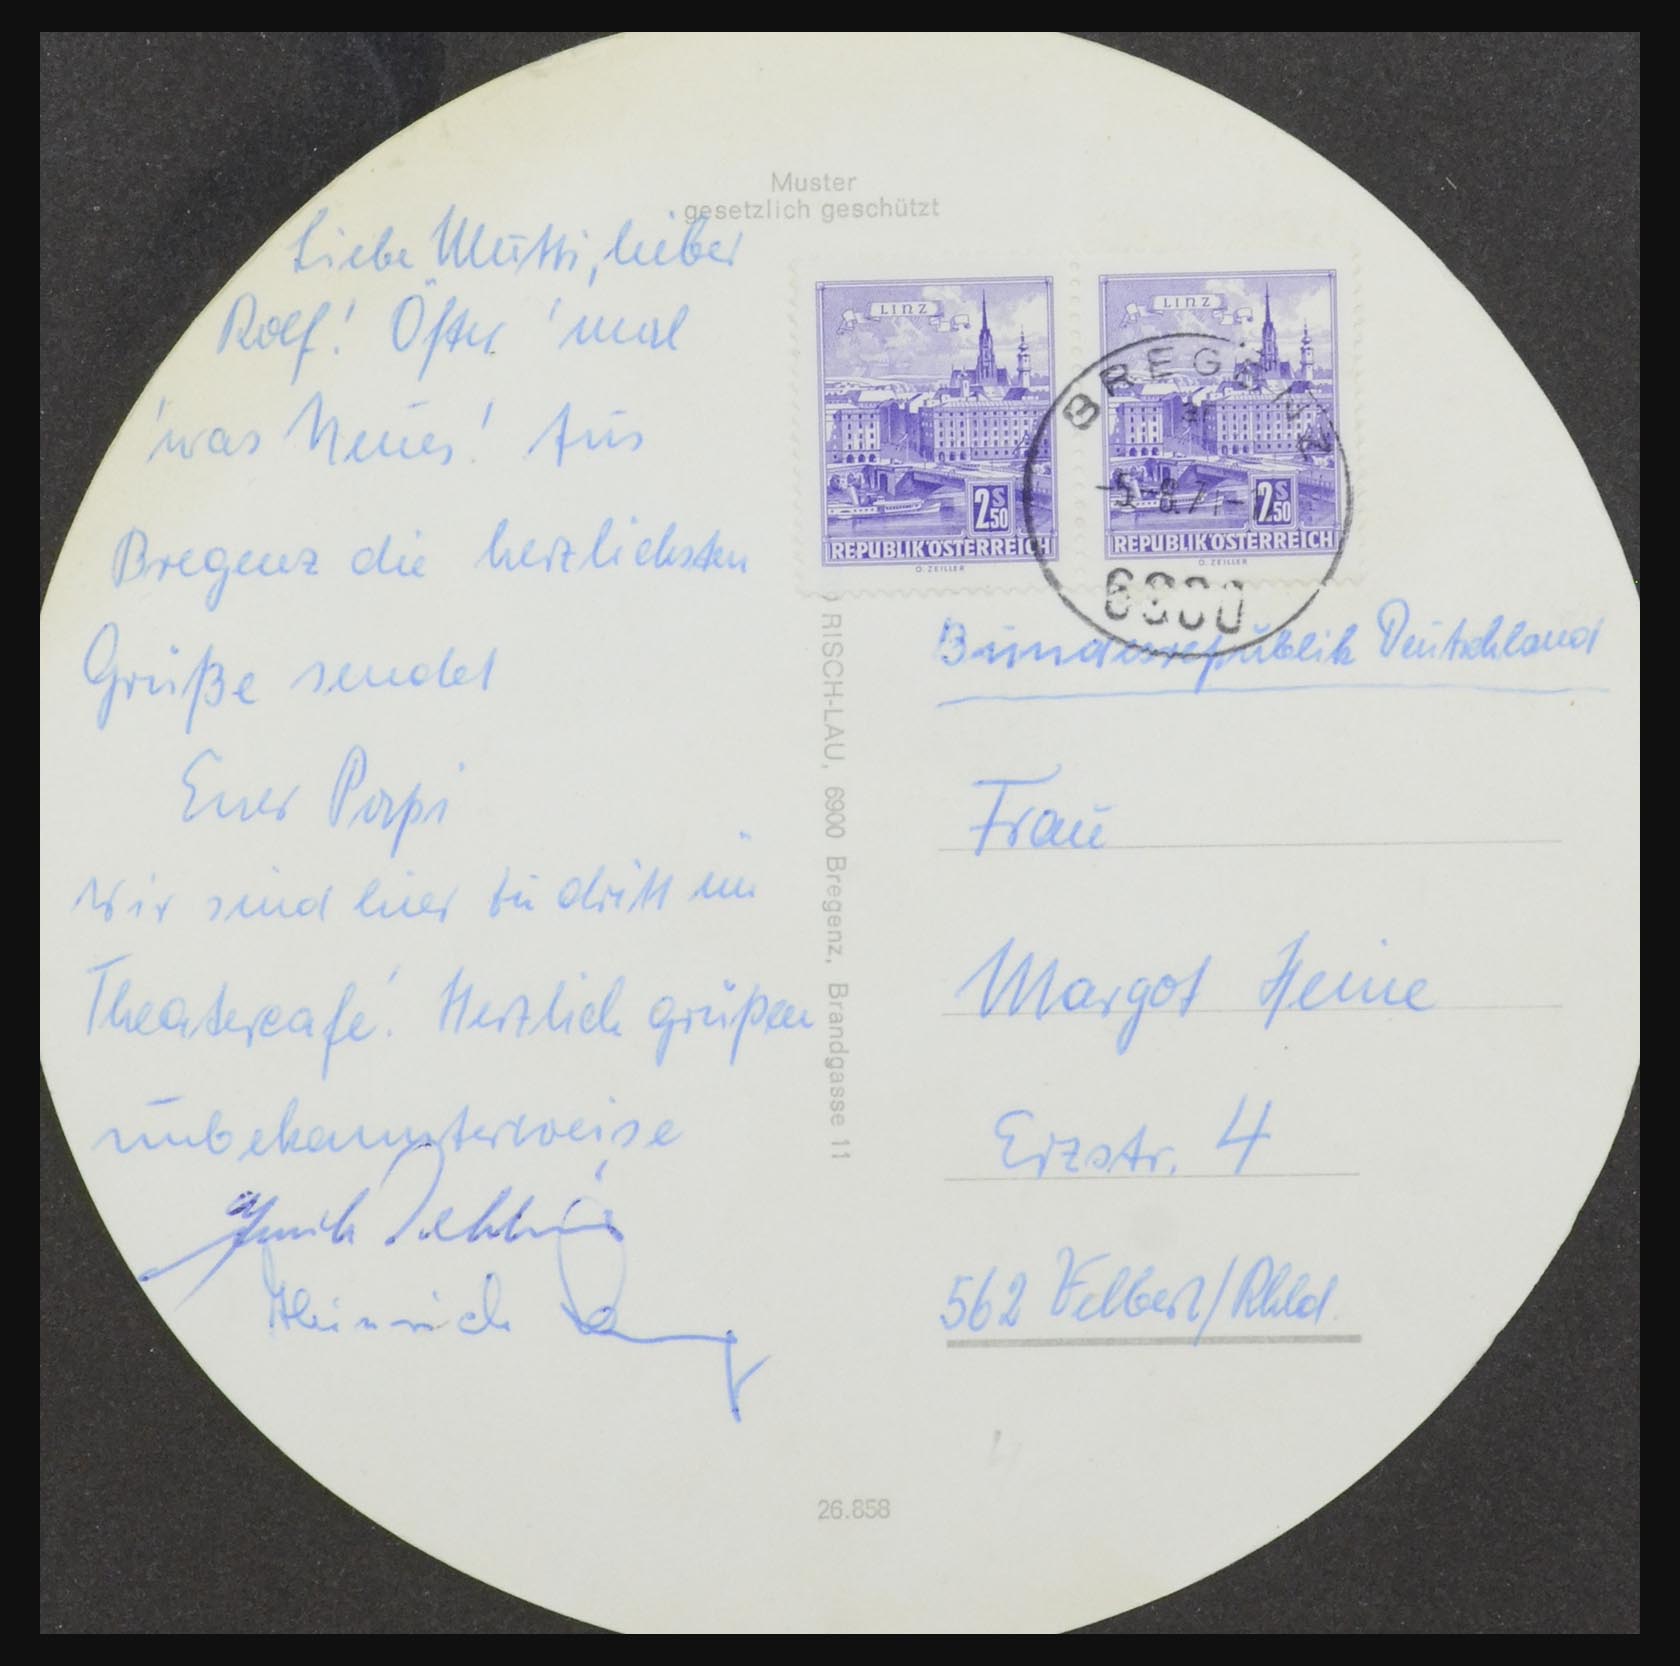 Muster
gesetzlich geschützt
Liebe Mutti, lieber
Rolf! Öfter 'mal
'was Neues! Aus
Bregenz die herzlichsten
Grüße sendet
Euer Papi
Wir sind hier zu dritt im
Theatercafé! Herzlich grüßen
unbekannterweise
Heinrich
LINZ
2S50
REPUBLIK ÖSTERREICH
O. ZEILLER
LINZ
2S50
REPUBLIK ÖSTERREICH
O. ZEILLER
BREGENZ
-5.-8.71-1
6900
RISCH-LAU, 6900 Bregenz, Brandgasse 11
Bundesrepublik Deutschland
Frau
Margot Heine
Erzstr. 4
562 Velbert/Rhld.
26.858